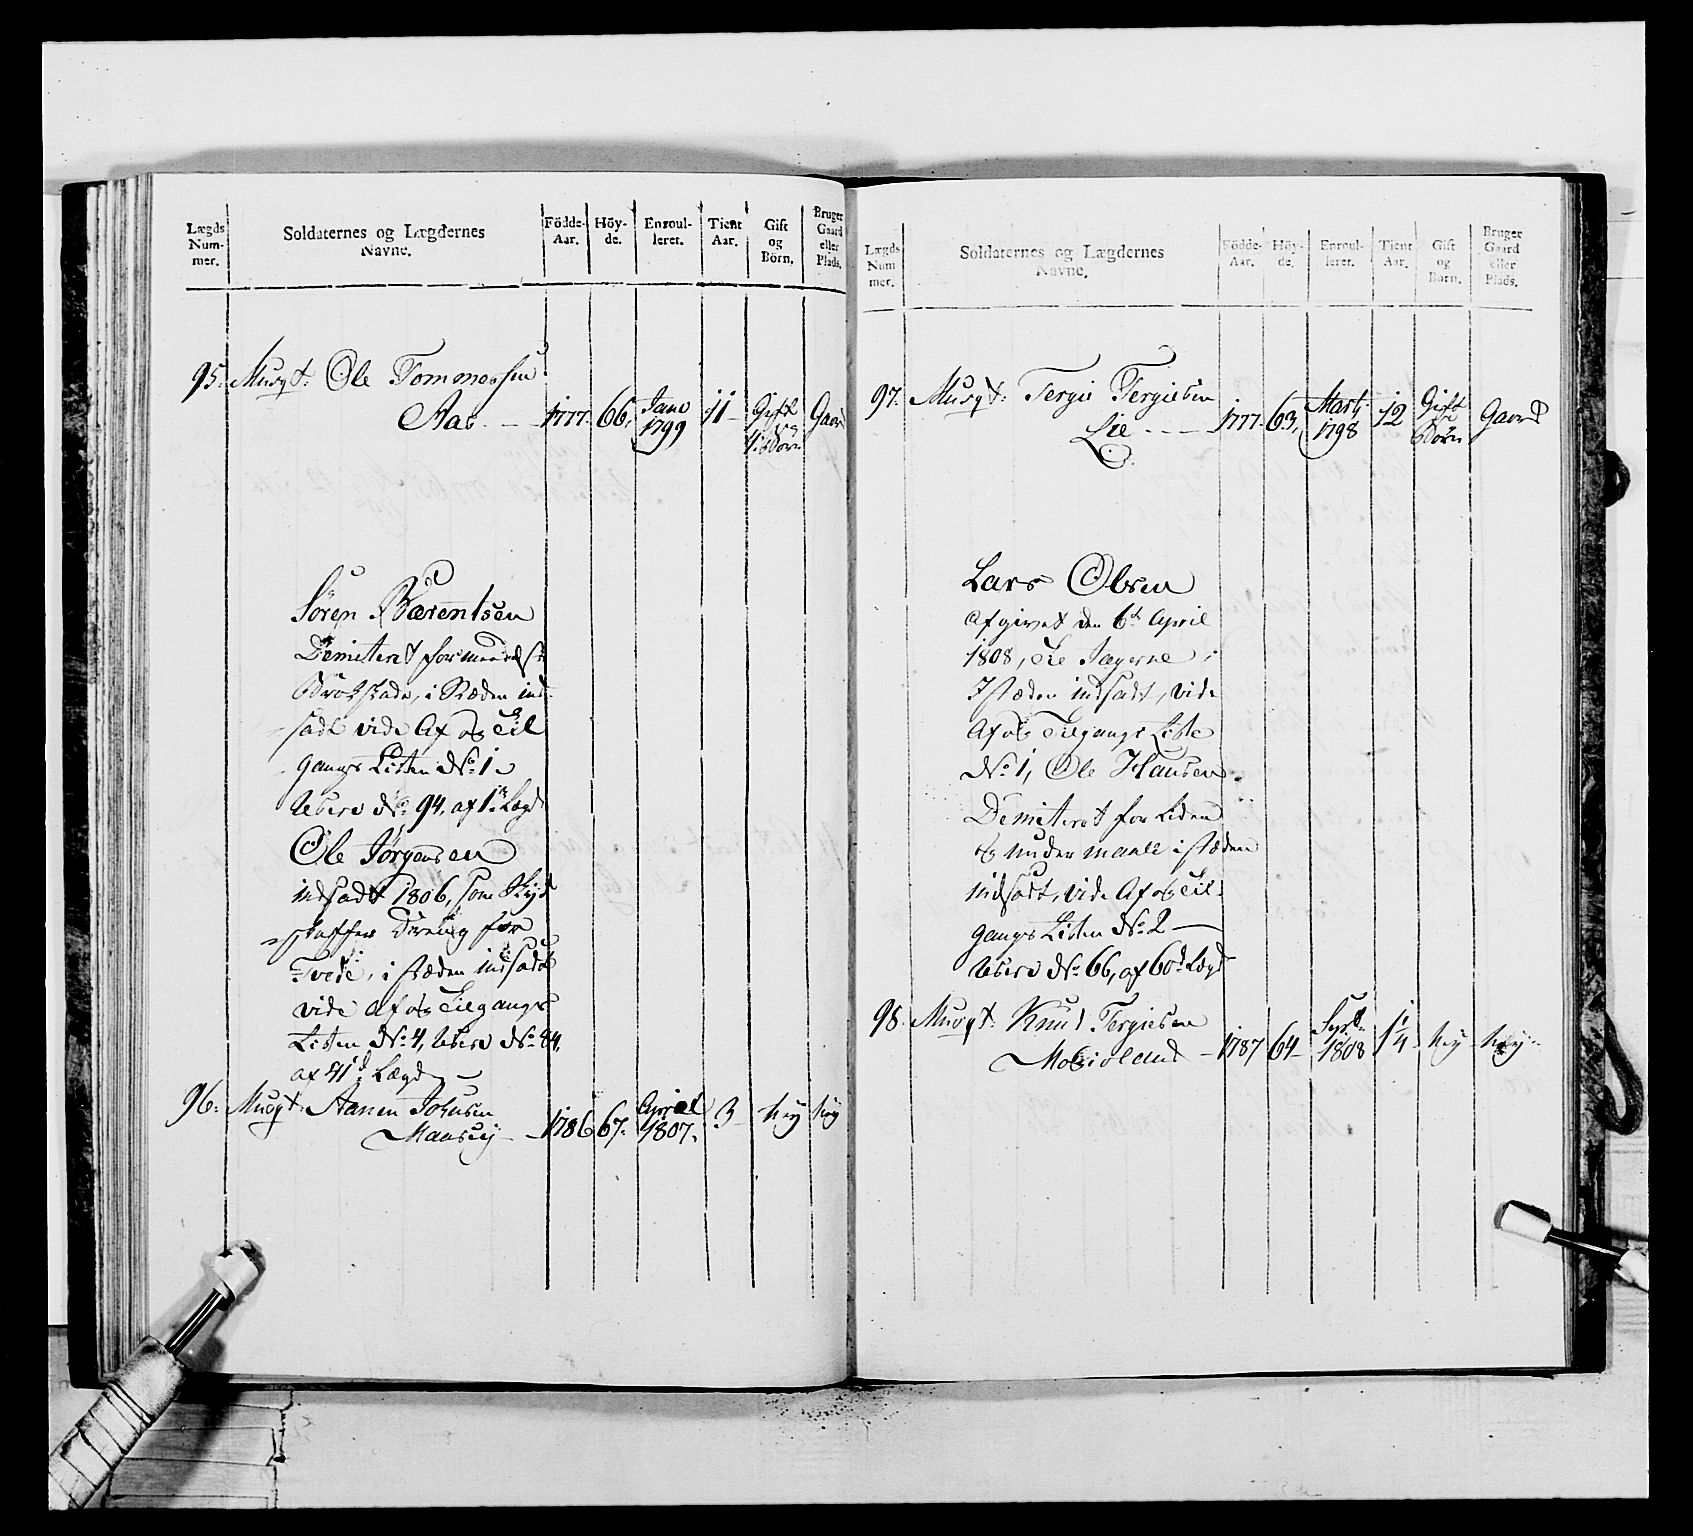 Lægds Num- mer.
Soldaternes og Lægdernes Navne.
Födde- Aar.
Höy- de.
Enroul- leret.
Tient Aar.
Gift og Börn.
Bruger Gaard eller Plads.
95. Musqt: Ole Tommesen
Aas — 1777. 66. Janv 1799 11 — Gift 1 Börn Gaard
Sören Bærentsen
Demiteret formedelst
Brokskade, i Stæden ind-
sadt vide Af og Til
gangs Listen No. 1
Userv No. 94. af 1te Lægd
Ole Jörgensen
indsadt 1806, som Skyds
skaffer Dreng for
Tvede, i stæden indsadt
vide Af og Tilgangs
Listen No. 4, Userv No. 84,
af 41d Lægd
96. Musqt. Aanen Johnsen
— 1786 67. April 1807. 3 Ney Ney
Lægds Num mer.
Soldaternes og Lægdernes Navne.
Födde- Aar.
Höy- de.
Enroul- leret.
Tient Aar.
Gift og Börn.
Bruger Gaard eller Plads.
97. Musqt: Tergie Tergiesen
Lie — 1777. 63, Marts 1798 12 Gift Börn Gaard
Lars Olsen
Afgivet den 6te April
1808, til Jægerne,
I stæden indsadt, vide
Af og Tilgangs Liste
No. 1, Ole Hansen
Demiteret for Liden
og under maale i stæden
indsadt, vide Af og Til-
gangs Listen No. 2 —
Userv No. 66, af 60d Lægd
98. Musqt: Knud Tergiesen
— 1787 64 — 1808 1 1/4 Ney Ney